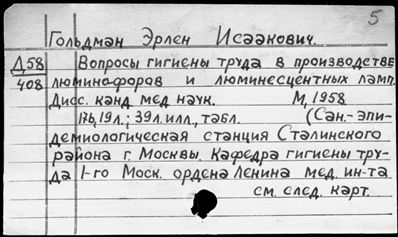 5
Гольдман Эрлен Исаакович.
Д58 Вопросы гигиены труда в производстве
408 люминофоров и люминесцентных ламп.
Дисс. канд. мед. наук. М, 1958.
176, 19 л.; 39 л. илл., табл. (Сан.-эпи-
демиологическая станция Сталинского
района г. Москвы. Кафедра гигиены тру-
да 1-го Моск. ордена Ленина мед. ин-та
см. след. карт.